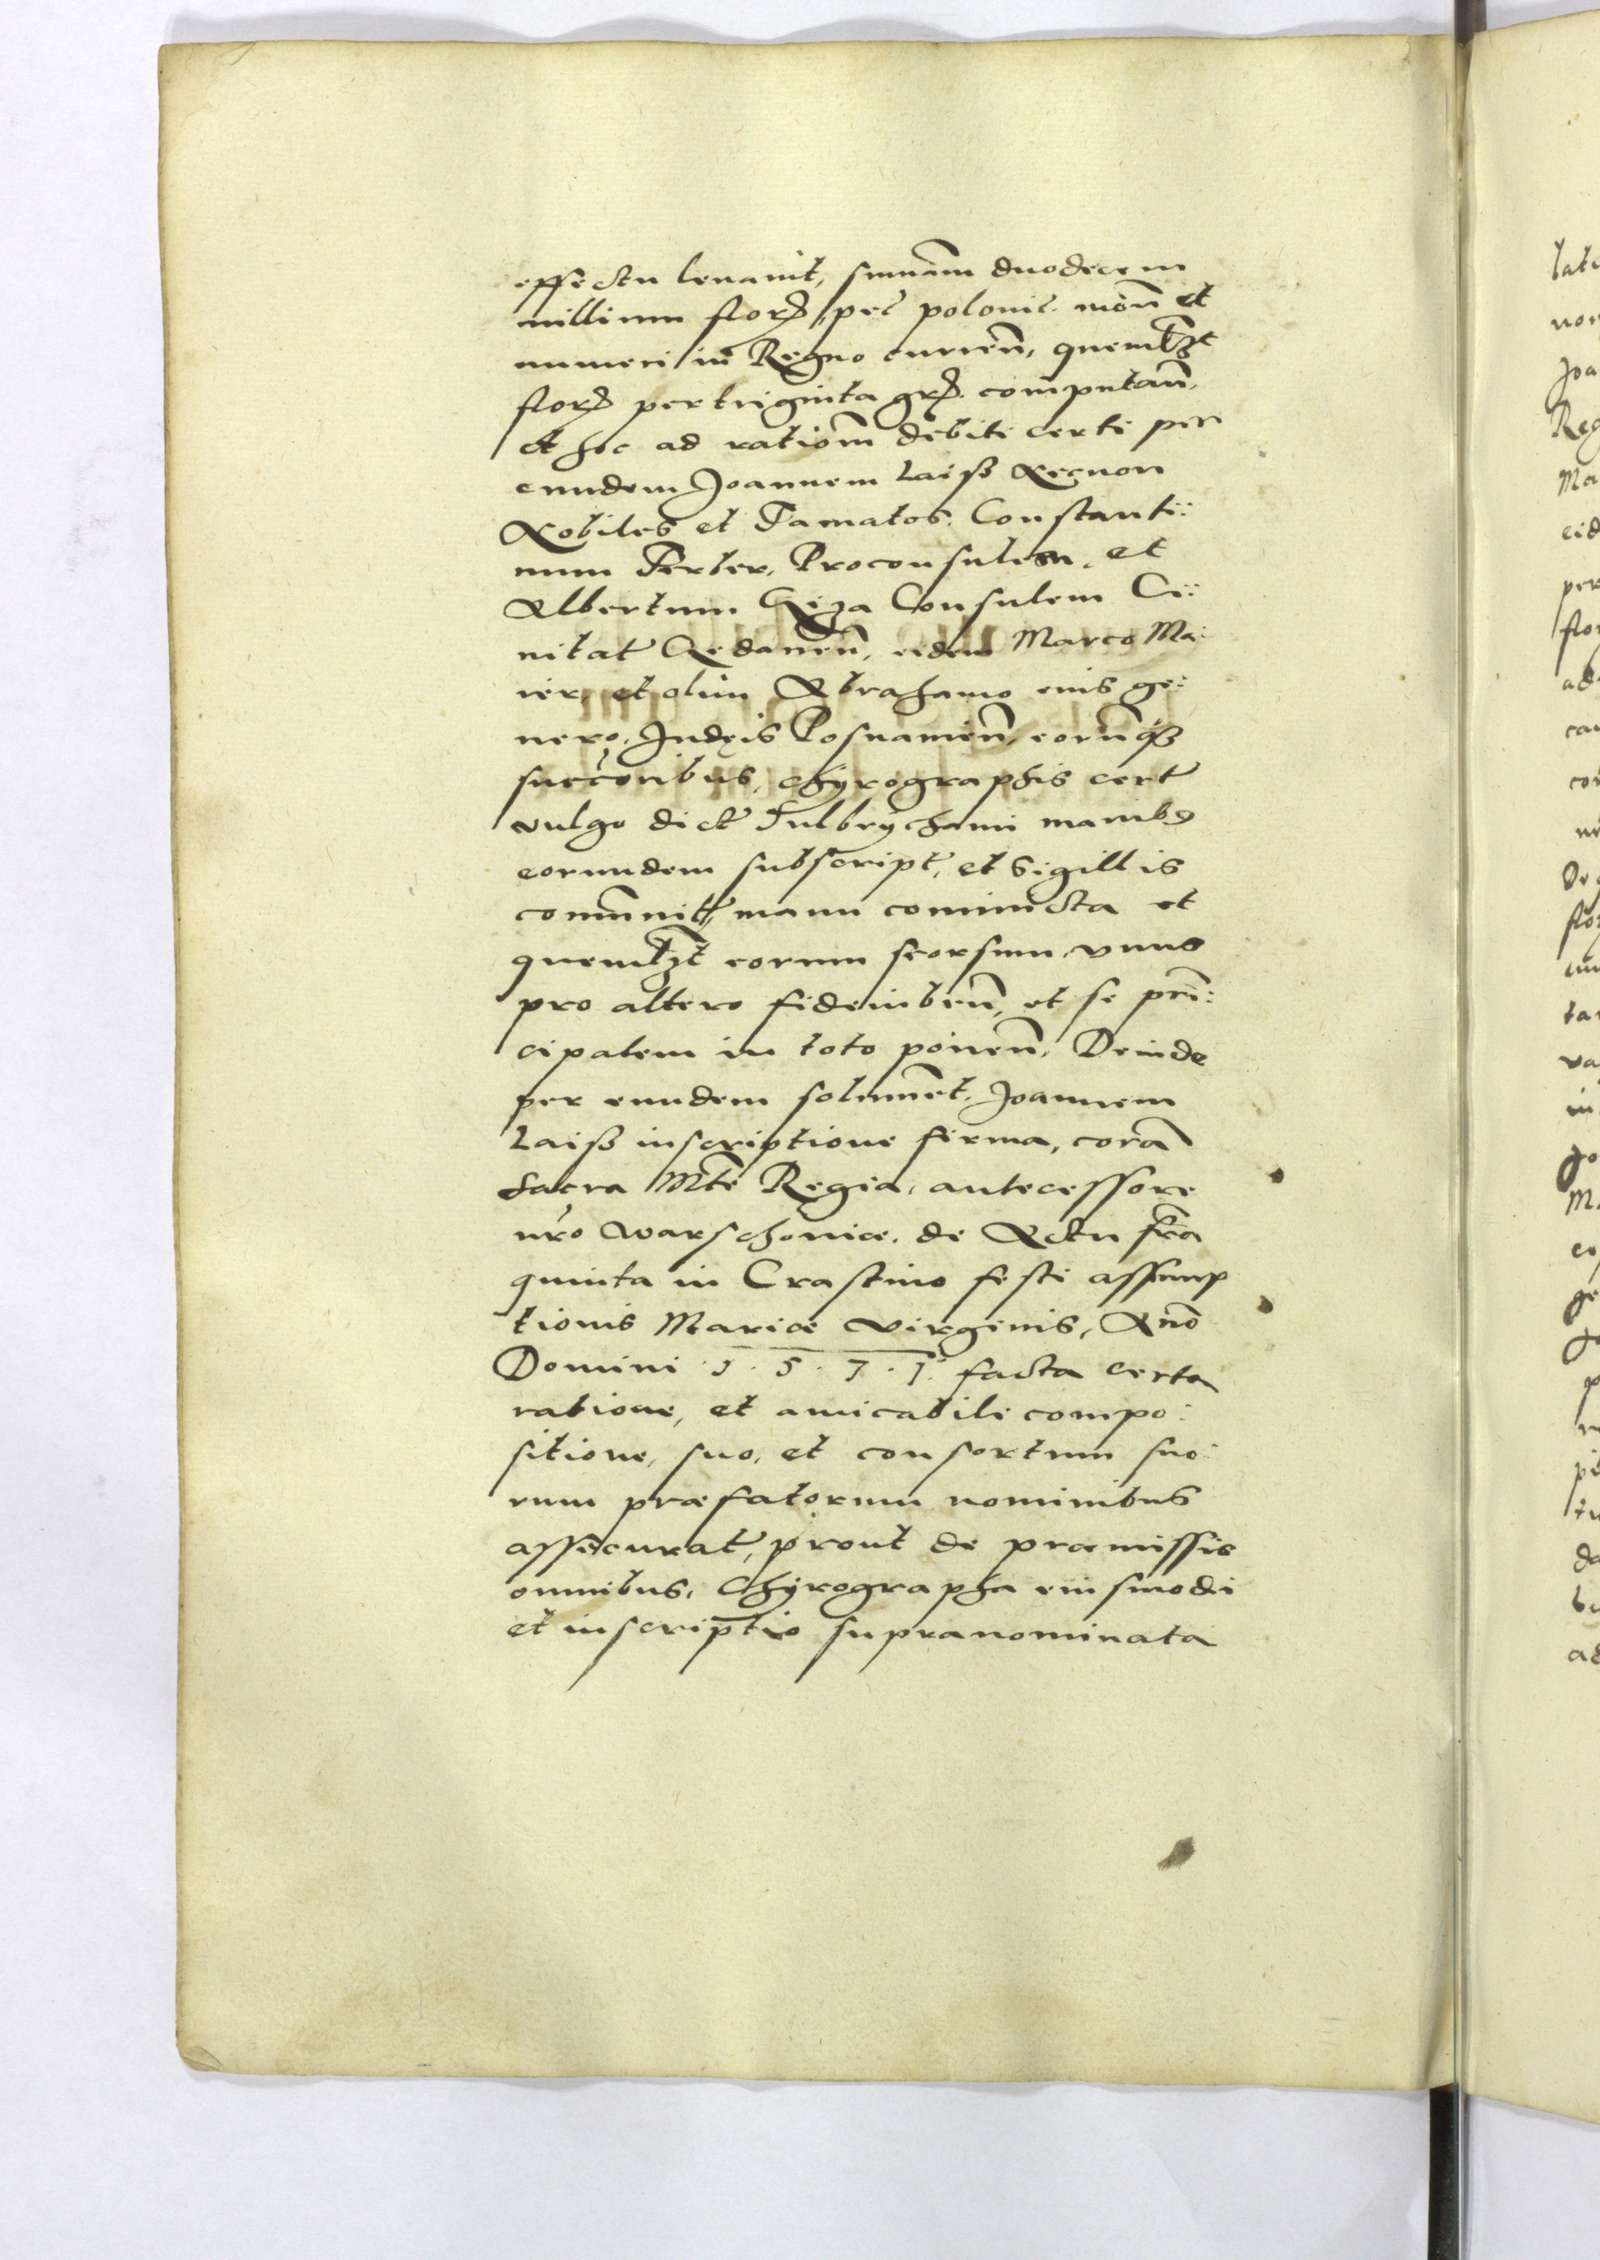 effectu leuauit, sum̃am duodecem
millium flor. pec̃ polonic̃. mon̄ et
numeri in Regno curren̄, quemlꝫt
flor. per triginta gr. computan̄.
et hoc ad ration̄m debiti certi per
eundem Joannem Laisz Necnon
Nobiles et Famatos. Constanti:
num Ferber, Proconsulem, et
Albertum Giza Consulem Ci:
uitat̃ Gedanen̄, eidem Marco Ma:
ier, et olim Abrahamo eius ge:
nero, Judęis Posnanien̄, eorumqꝫ
succ̃oribus, chyrographis cert̃
vulgo dict̃ Fulbrychami manibꝰ
eorundem subscript̃, et sigillis
com̄unit̃, manu coniuncta et
quemlꝫt eorum seorsum, vnus
pro altero fideiuben̄, et se prin̄:
cipalem in toto ponen̄, Deinde
per eundem solum̄et, Joannem
Laisz inscriptione firma, corā
Sacra Mt̄e Regia, antecessore
nr̃o Warschouiæ, de Actu fr̃a
quinta in Crastino festi assump
tionis Mariæ virginis, An̄o
Domini .1.5.7.1. facta certa
ratione, et amicabili compo:
sitione, suo, et consortum suo:
rum præfatorum nominibus
assecurat̃, prout de præmissis
omnibus, Chyrographa eiusmodi
et inscriptio supranominata